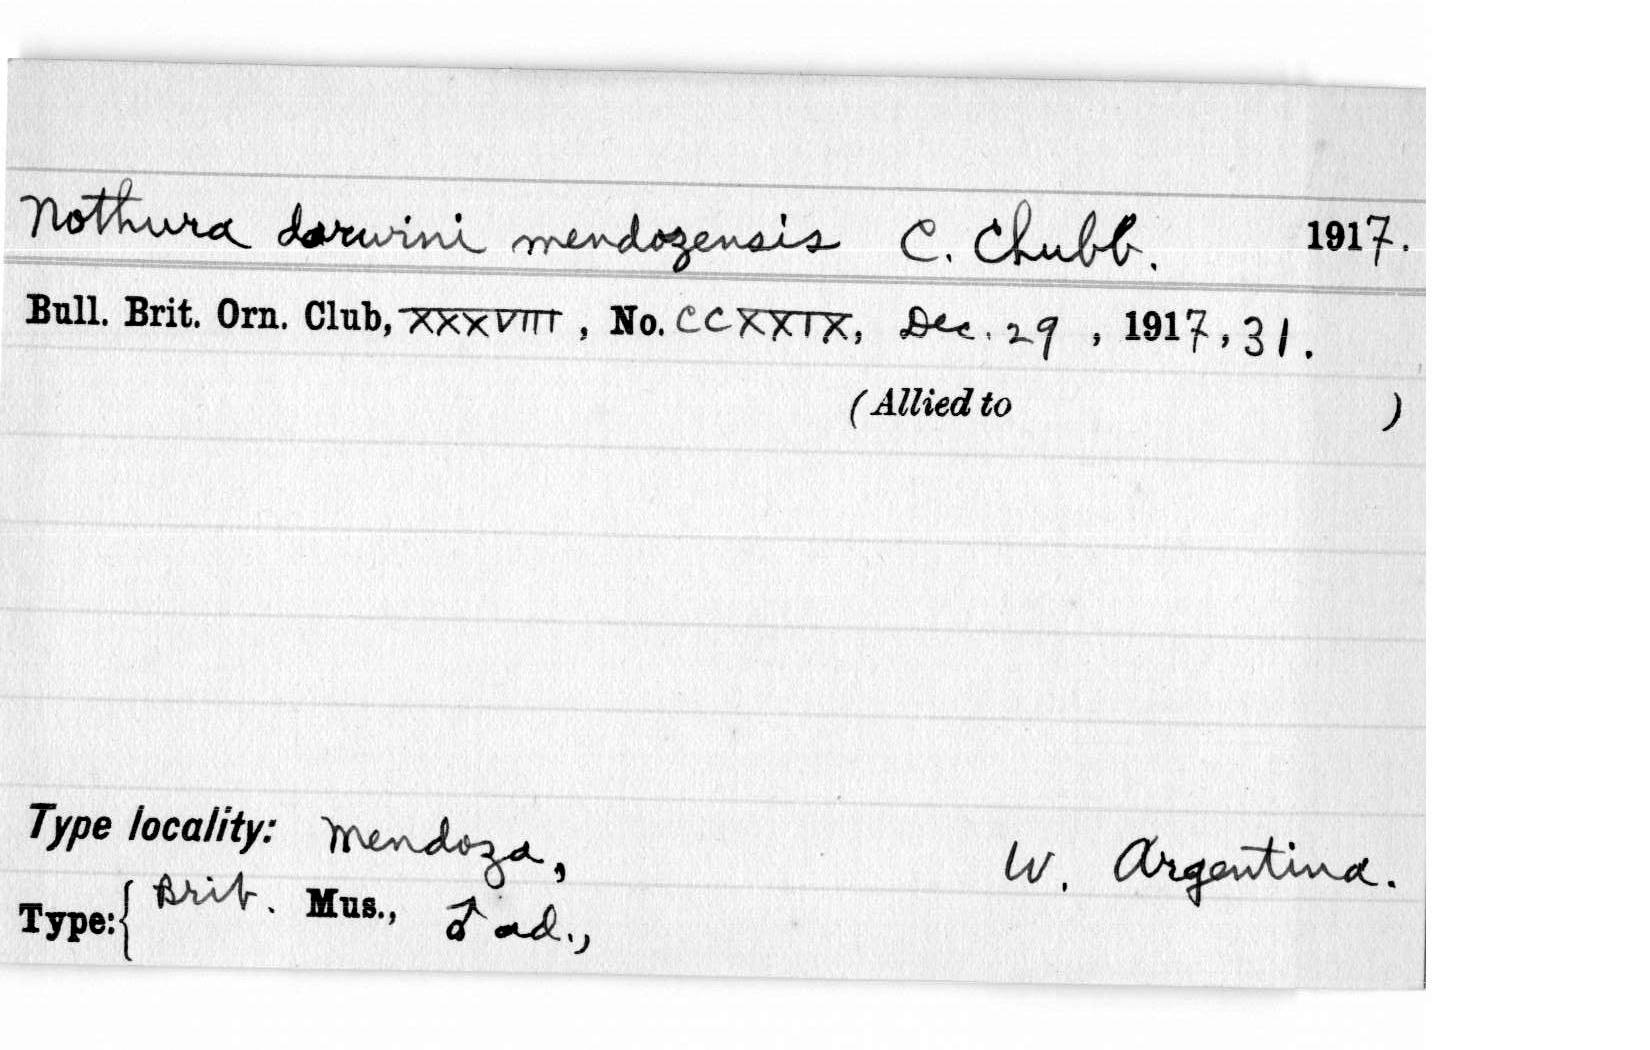 Nothura darwini mendozensis C. Chubb. 1917.
Bull. Brit. Orn. Club, XXXVIII, No. CCXXIX, Dec. 29, 1917, 31.
(Allied to )
Type locality: Mendoza, W. Argentina.
Type: { Brit. Mus., ♂ ad.,